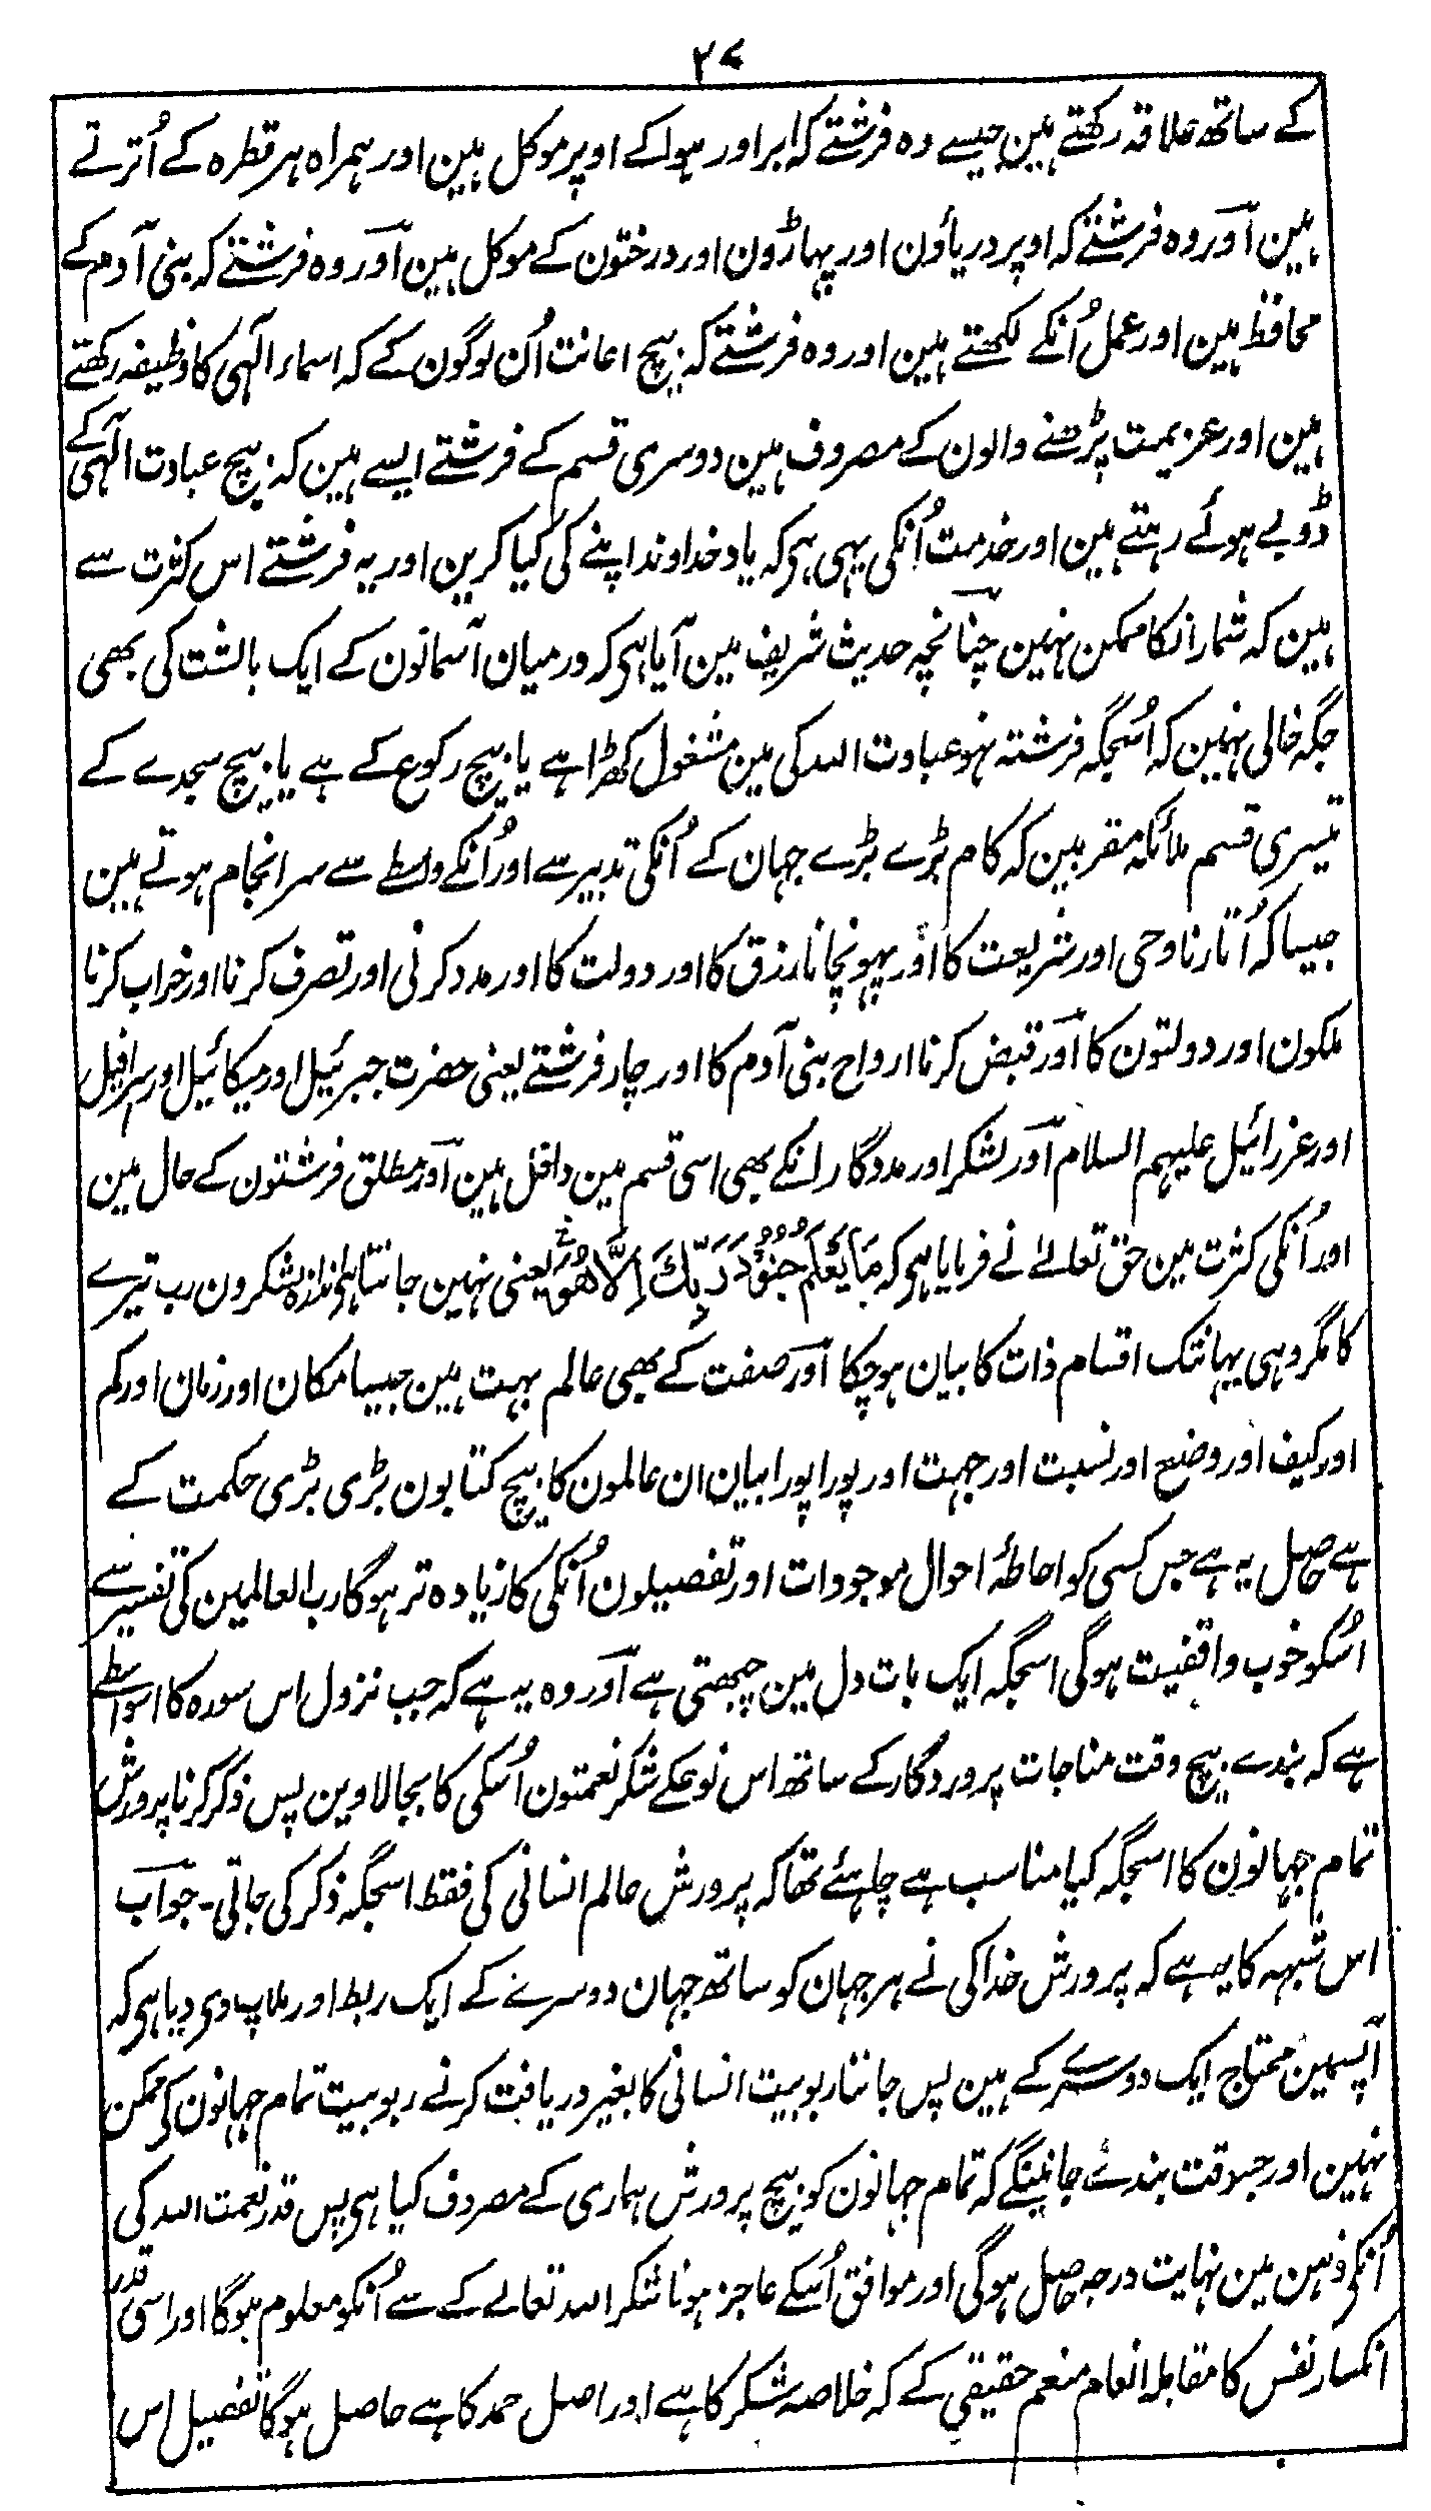 ۲۷
کے ساتھ علاقہ رکھتے ہین جیسے وہ فرشتے کہ ابر اور ہوا کے اوپر موکل ہین اور ہمراہ ہر قطرہ کے اُترتے
ہین اور وہ فرشتے کہ اوپر دریاؤن اور پہاڑون اور درختون کے موکل ہین اور وہ فرشتے کہ بنی آدم کے
محافظ ہین اور عمل اُنکے لکھتے ہین اور وہ فرشتے کہ بیچ اعانت اُن لوگون کے کہ اسماء الٰہی کا وظیفہ رکھتے
ہین اور عزیمت پڑھنے والون کے مصروف ہین دوسری قسم کے فرشتے ایسے ہین کہ بیچ عبادت الٰہی کے
ڈوبے ہوئے رہتے ہین اور خدمت اُنکی یہی ہی کہ یاد خداوند اپنے کی کیا کرین اور یہ فرشتے اس کثرت سے
ہین کہ شمار انکا ممکن نہین چنانچہ حدیث شریف مین آیا ہی کہ درمیان آسمانون کے ایک بالشت کی بھی
جگہ خالی نہین کہ اُسجگہ فرشتہ نہو عبادت اللہ کی مین مشغول کھڑا ہے یا بیچ رکوع کے ہے یا بیچ سجدے کے
تیسری قسم ملائکہ مقربین کہ کام بڑے بڑے جہان کے اُنکی تدبیر سے اور اُنکے واسطے سے سرانجام ہوتے ہین
جیسا کہ اُتارنا وحی اور شریعت کا اور پہونچانا رزق کا اور دولت کا اور مدد کرنی اور تصرف کرنا اور خراب کرنا
ملکون اور دولتون کا اور قبض کرنا ارواح بنی آدم کا اور چار فرشتے یعنی حضرت جبرئیل اور میکائیل اور اسرافیل
اور عزرائیل علیہم السلام اور لشکر اور مددگار انکے بھی اسی قسم مین داخل ہین اور مطلق فرشتون کے حال مین
اور اُنکی کثرت مین حق تعالےٰ نے فرمایا ہی کہ مَا یَعْلَمُ جُنُوْدَ رَبِّكَ اِلَّا هُوَ یعنی نہین جانتا ہی اندازہ لشکرون رب تیرے
کا مگر وہی یہانتک اقسام ذات کا بیان ہوچکا اور صفت کے بھی عالم بہت ہین جیسا مکان اور زمان اور کم
اور کیف اور وضع اور نسبت اور جہت اور پورا پورا بیان ان عالمون کا بیچ کتابون بڑی بڑی حکمت کے
ہے حاصل یہ ہے جس کسی کو احاطۂ احوال موجودات اور تفصیلون اُنکی کا زیادہ تر ہوگا رب العالمین کی تفسیر سے
اُسکو خوب واقفیت ہوگی اسجگہ ایک بات دل مین چبھتی ہے اور وہ یہ ہے کہ جب نزول اس سورہ کا اسواسطے
ہے کہ بندے بیچ وقت مناجات پروردگار کے ساتھ اس نوعکے شکر نعمتون اُسکی کا بجالاوین پس ذکر کرنا پرورش
تمام جہانون کا اسجگہ کیا مناسب ہے چاہئے تھا کہ پرورش عالم انسانی کی فقط اسجگہ ذکر کی جاتی۔ جواب
اس شبہہ کا یہ ہے کہ پرورش خدا کی نے ہر جہان کو ساتھ جہان دوسرے کے ایک ربط اور ملاپ دی دیا ہی کہ
آپسمین محتاج ایک دوسرے کے ہین پس جاننا ربوبیت انسانی کا بغیر دریافت کرنے ربوبیت تمام جہانون کی ممکن
نہین اور جسوقت بندے جانینگے کہ تمام جہانون کو بیچ پرورش ہماری کے مصروف کیا ہی پس قدر نعمت اللہ کی
اُنکی ذہن مین نہایت درجہ حاصل ہوگی اور موافق اُسکے عاجز ہونا شکر اللہ تعالے کے سے اُنکو معلوم ہوگا اور اسی قدر
انکسار نفس کا مقابلہ انعام منعم حقیقی کے کہ خلاصہ شکر کا ہے اور اصل حمد کا ہے حاصل ہوگا تفصیل اس